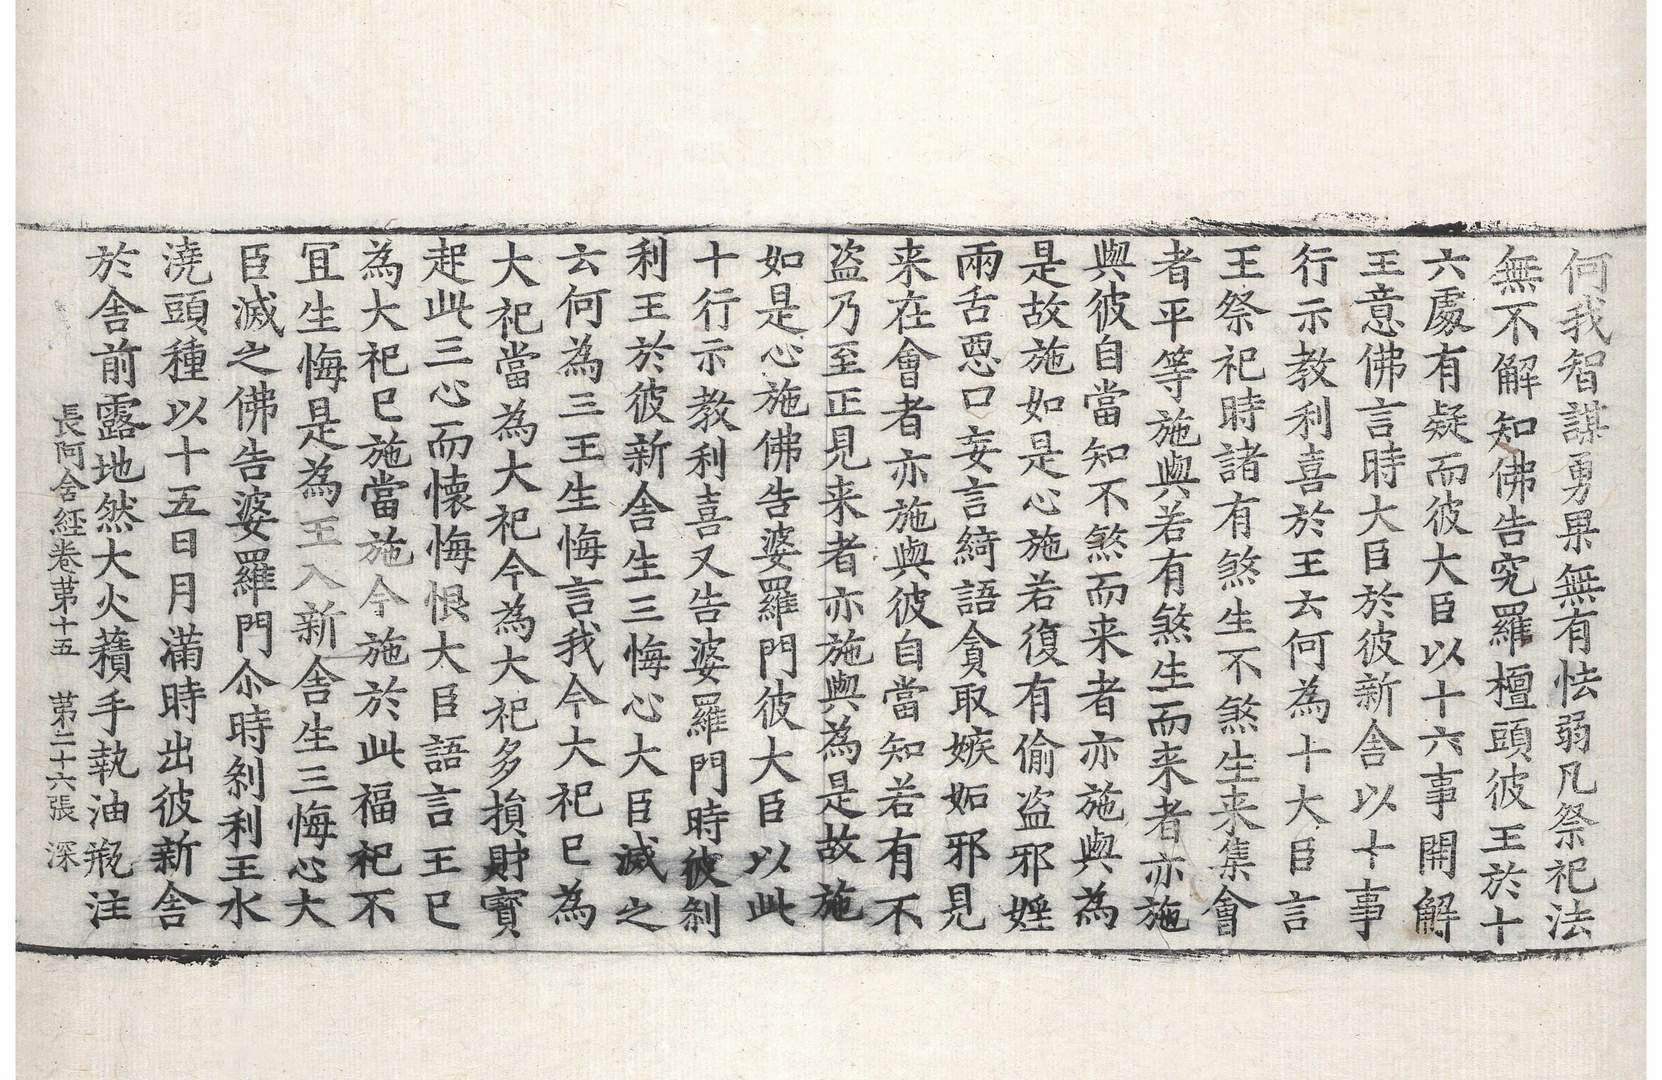 何我智謀勇果無有怯弱凡祭祀法
無不解知佛告究羅檀頭彼王於十
六處有疑而彼大臣以十六事開解
王意佛言時大臣於彼新舎以十事
行示教利喜於王云何為十大臣言
王祭祀時諸有煞生不煞生来集會
者平等施與若有煞生而来者亦施
與彼自當知不煞而来者亦施與為
是故施如是心施若復有偷盗邪婬
兩舌惡口妄言綺語貪取嫉妬邪見
来在會者亦施與彼自當知若有不
盗乃至正見来者亦施與為是故施
如是心施佛告婆羅門彼大臣以此
十行示教利喜又告婆羅門時彼剎
利王於彼新舎生三悔心大臣滅之
云何為三王生悔言我今大祀已為
大祀當為大祀今為大祀多損財寳
起此三心而懐悔恨大臣語言王已
為大祀已施當施今施於此福祀不
冝生悔是為王入新舎生三悔心大
臣滅之佛告婆羅門尒時剎利王水
澆頭種以十五日月滿時出彼新舎
於舎前露地然大火𧂐手執油瓶注
長阿含経卷苐十五　苐二十六張　深